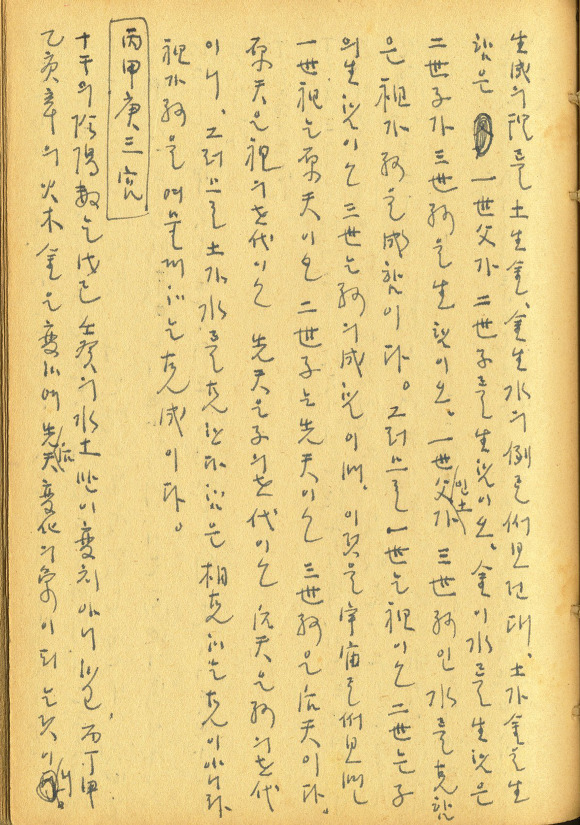 生成의 理를 土生金, 金生水의 例로 써보건대, 土가 金을 生
함은 一世父가 二世子를 生함이오, 金이 水를 生함은
二世子가 三世孫을 生함이오, 一世父인土가 三世孫인 水를 克함
은 祖가 孫을 成함이다。 그러므로 一世는 祖이오 二世는 子
의 生함이오 三世는 孫의 成함이며, 이것을 宇宙로 써보면
一世祖는 原天이오 二世子는 先天이오 三世孫은 后天이다.
原天은 祖의 世代이오 先天은 子의 世代이오 后天은 孫의 世代
이니, 그러므로 土가 水를 克한다 함은 相克하는 克이 아니라
祖가 孫을 여물게 하는 克成이다。
丙甲庚三宮
十干의 陰陽數는 戊己 壬癸의 水土만이 變치 아니하고 丙丁甲
乙庚辛의 火木金은 變하여 先后天變化의 象이 되는 것이니。